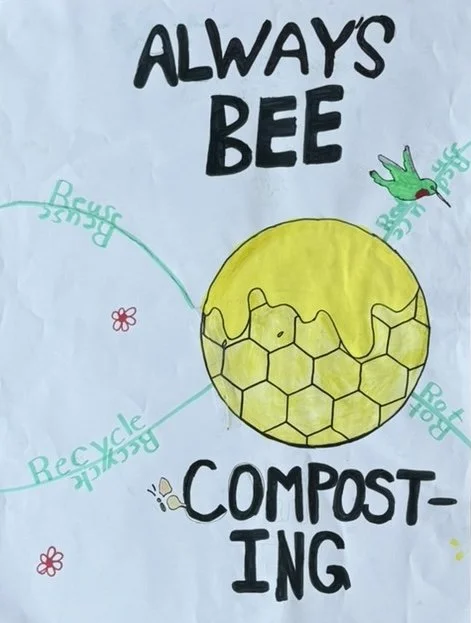 ALWAY'S
BEE
Reuse
Reuse
Recycle
Recycle
Rot
Rot
COMPOST-
ING